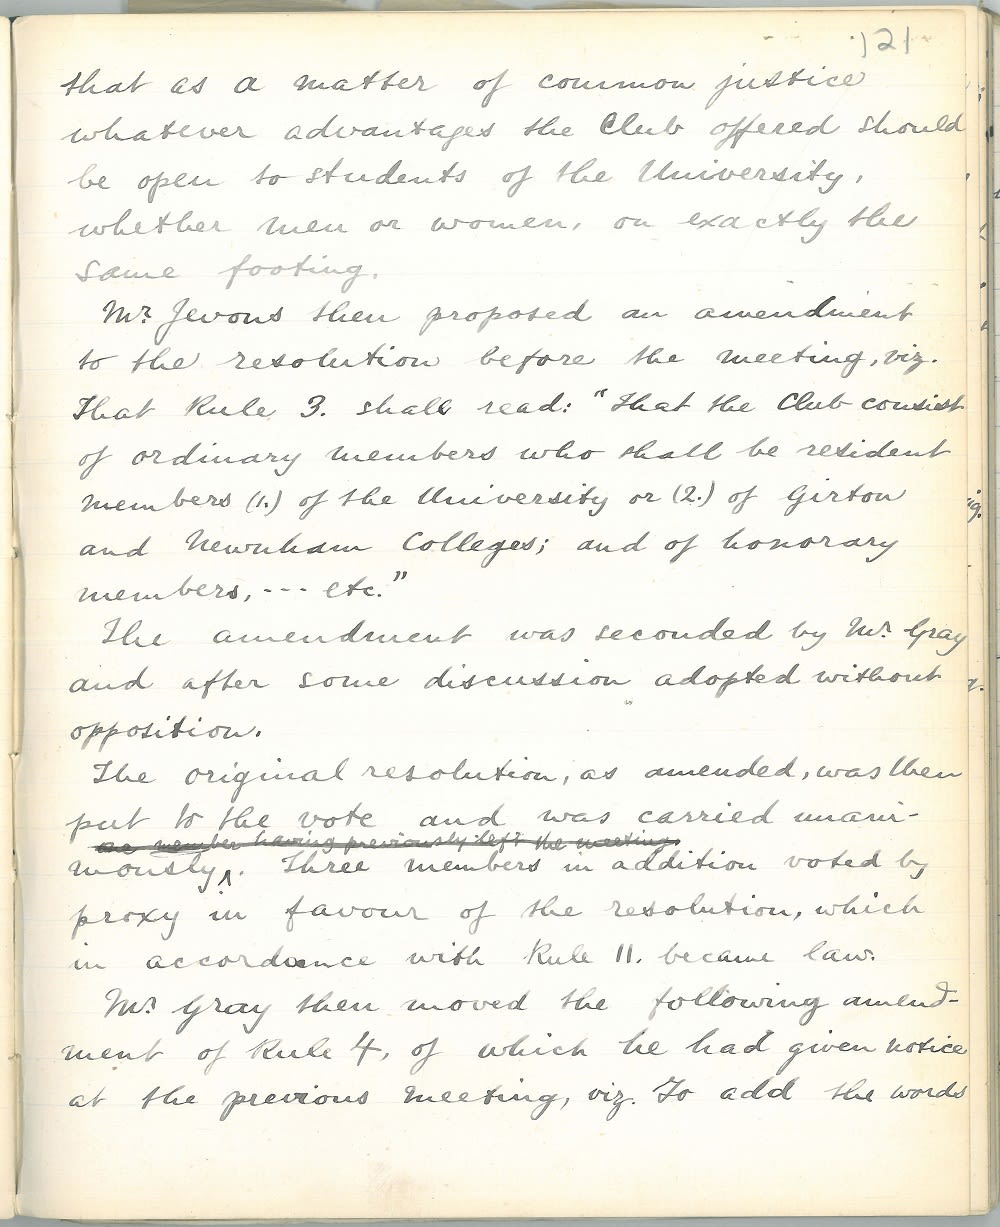 121
that as a matter of common justice
whatever advantages the Club offered should
be open to students of the University,
whether men or women, on exactly the
same footing.
Mr. Jevons then proposed an amendment
to the resolution before the meeting, viz.
That Rule 3. shall read: "That the Club consist
of ordinary members who shall be resident
members (1.) of the University or (2.) of Girton
and Newnham Colleges; and of honorary
members, --- etc."
The amendment was seconded by Mr. Gray
and after some discussion adopted without
opposition.
The original resolution, as amended, was then
put to the vote and was carried unani-
one member having previously left the meeting.
mously. Three members in addition voted by
proxy in favour of the resolution, which
in accordance with Rule 11. became law.
Mr. Gray then moved the following amend-
ment of Rule 4, of which he had given notice
at the previous meeting, viz. To add the words